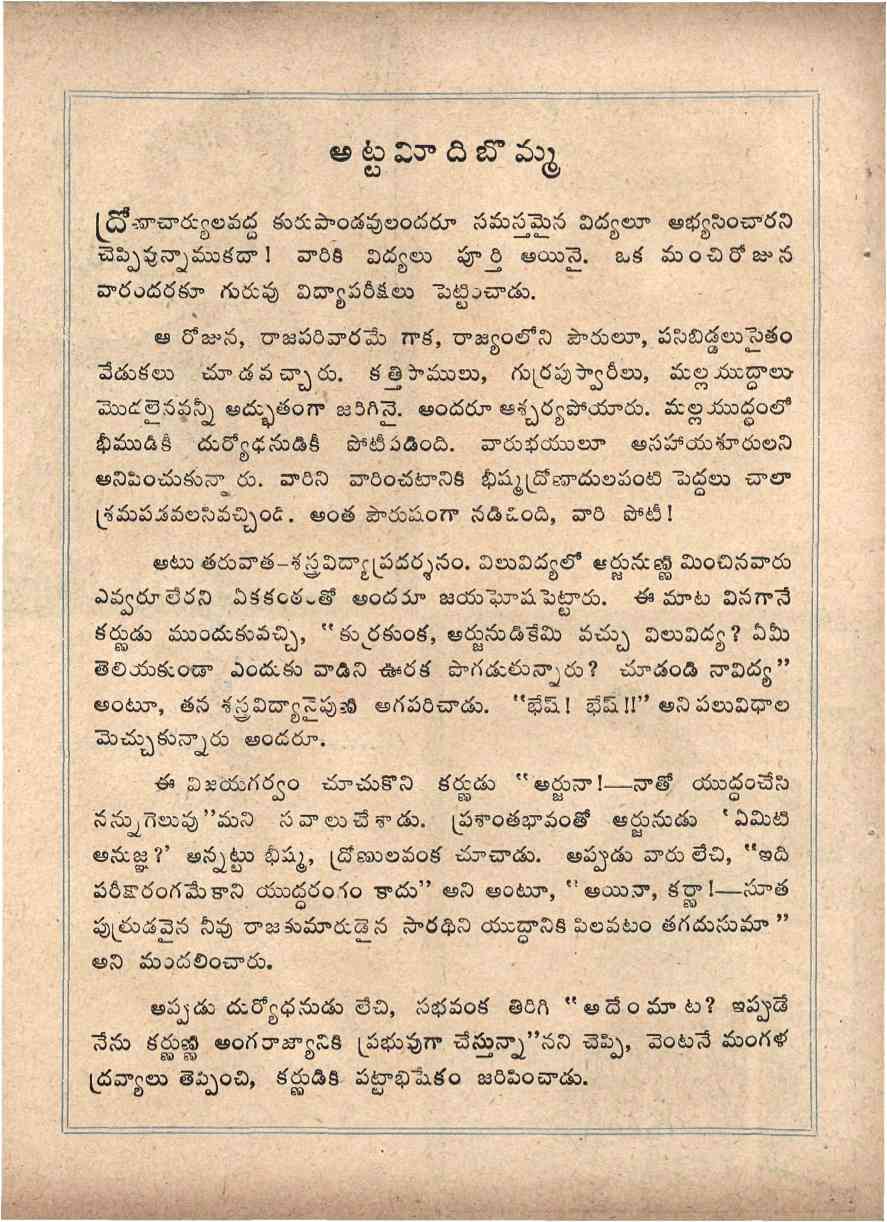 అట్టమీదిబొమ్మ
ద్రోణాచార్యులవద్ద కురుపాండవులందరూ సమస్తమైన విద్యలూ అభ్యసించారని
చెప్పివున్నాముకదా! వారికి విద్యలు పూర్తి అయినై. ఒక మంచిరోజున
వారందరకూ గురువు విద్యాపరీక్షలు పెట్టించాడు.
ఆ రోజున, రాజపరివారమే గాక, రాజ్యంలోని పౌరులూ, పసిబిడ్డలుసైతం
వేడుకలు చూడవచ్చారు. కత్తిసాములు, గుర్రపుస్వారీలు, మల్లయుద్ధాలు
మొదలైనవన్నీ అద్భుతంగా జరిగినై. అందరూ ఆశ్చర్యపోయారు. మల్లయుద్ధంలో
భీముడికీ దుర్యోధనుడికీ పోటీపడింది. వారుభయులూ అసహాయశూరులని
అనిపించుకున్నారు. వారిని వారించటానికి భీష్మద్రోణాదులపంటి పెద్దలు చాలా
శ్రమపడవలసివచ్చింది. అంత పౌరుషంగా నడిచింది, వారి పోటీ!
అటు తరువాత–శస్త్రవిద్యాప్రదర్శనం. విలువిద్యలో అర్జునుణ్ణి మించినవారు
ఎవ్వరూలేరని ఏకకంఠంతో అందరూ జయఘోషపెట్టారు. ఈ మాట వినగానే
కర్ణుడు ముందుకువచ్చి, "కుర్రకుంక, అర్జునుడికేమి వచ్చు విలువిద్య? ఏమీ
తెలియకుండా ఎందుకు వాడిని ఊరక పొగడుతున్నారు? చూడండి నావిద్య"
అంటూ, తన శస్త్రవిద్యానైపుణి అగపరిచాడు. "భేష్! భేష్!!" అని పలువిధాల
మెచ్చుకున్నారు అందరూ.
ఈ విజయగర్వం చూచుకొని కర్ణుడు "అర్జునా!—నాతో యుద్ధంచేసి
నన్నుగెలువు"మని సవాలుచేశాడు. ప్రశాంతభావంతో అర్జునుడు 'ఏమిటి
అనుజ్ఞ?' అన్నట్టు భీష్మ, ద్రోణులవంక చూచాడు. అప్పుడు వారు లేచి, "ఇది
పరీక్షారంగమేకాని యుద్ధరంగం కాదు" అని అంటూ, "అయినా, కర్ణా!—సూత
పుత్రుడవైన నీవు రాజకుమారుడైన సారథిని యుద్ధానికి పిలవటం తగదుసుమా"
అని మందలించారు.
అప్పుడు దుర్యోధనుడు లేచి, సభవంక తిరిగి "అదేంమాట? ఇప్పుడే
నేను కర్ణుణ్ణి అంగరాజ్యానికి ప్రభువుగా చేస్తున్నా"నని చెప్పి, వెంటనే మంగళ
ద్రవ్యాలు తెప్పించి, కర్ణుడికి పట్టాభిషేకం జరిపించాడు.